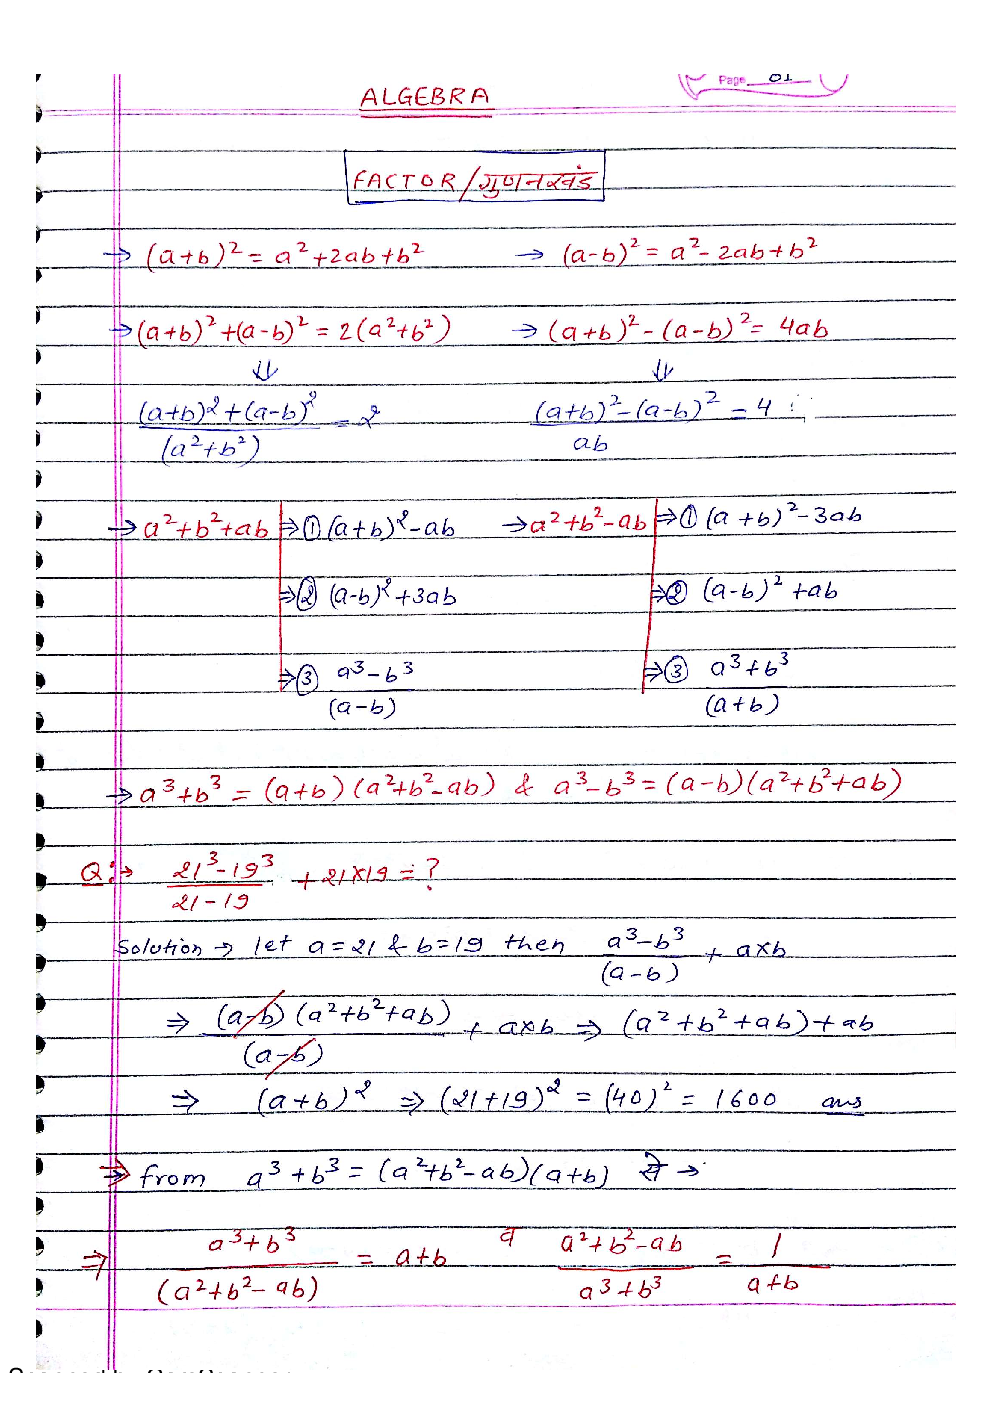 Page 01
ALGEBRA
FACTOR/गुणनखंड
→ (a+b)² = a²+2ab+b² → (a-b)² = a²-2ab+b²
→ (a+b)²+(a-b)² = 2(a²+b²) → (a+b)²-(a-b)² = 4ab
⇓ ⇓
(a+b)²+(a-b)² / (a²+b²) = 2 (a+b)²-(a-b)² / ab = 4
→ a²+b²+ab ⇒ ① (a+b)²-ab → a²+b²-ab ⇒ ① (a+b)²-3ab
⇒ ② (a-b)²+3ab ⇒ ② (a-b)²+ab
⇒ ③ a³-b³ / (a-b) ⇒ ③ a³+b³ / (a+b)
→ a³+b³ = (a+b)(a²+b²-ab) & a³-b³ = (a-b)(a²+b²+ab)
Q:→ 21³-19³ / 21-19 + 21×19 = ?
Solution → let a=21 & b=19 then a³-b³ / (a-b) + a×b
⇒ (a-b)(a²+b²+ab) / (a-b) + a×b ⇒ (a²+b²+ab)+ab
⇒ (a+b)² ⇒ (21+19)² = (40)² = 1600 ans
⇒ from a³+b³ = (a²+b²-ab)(a+b) से →
⇒ a³+b³ / (a²+b²-ab) = a+b व a²+b²-ab / a³+b³ = 1 / a+b